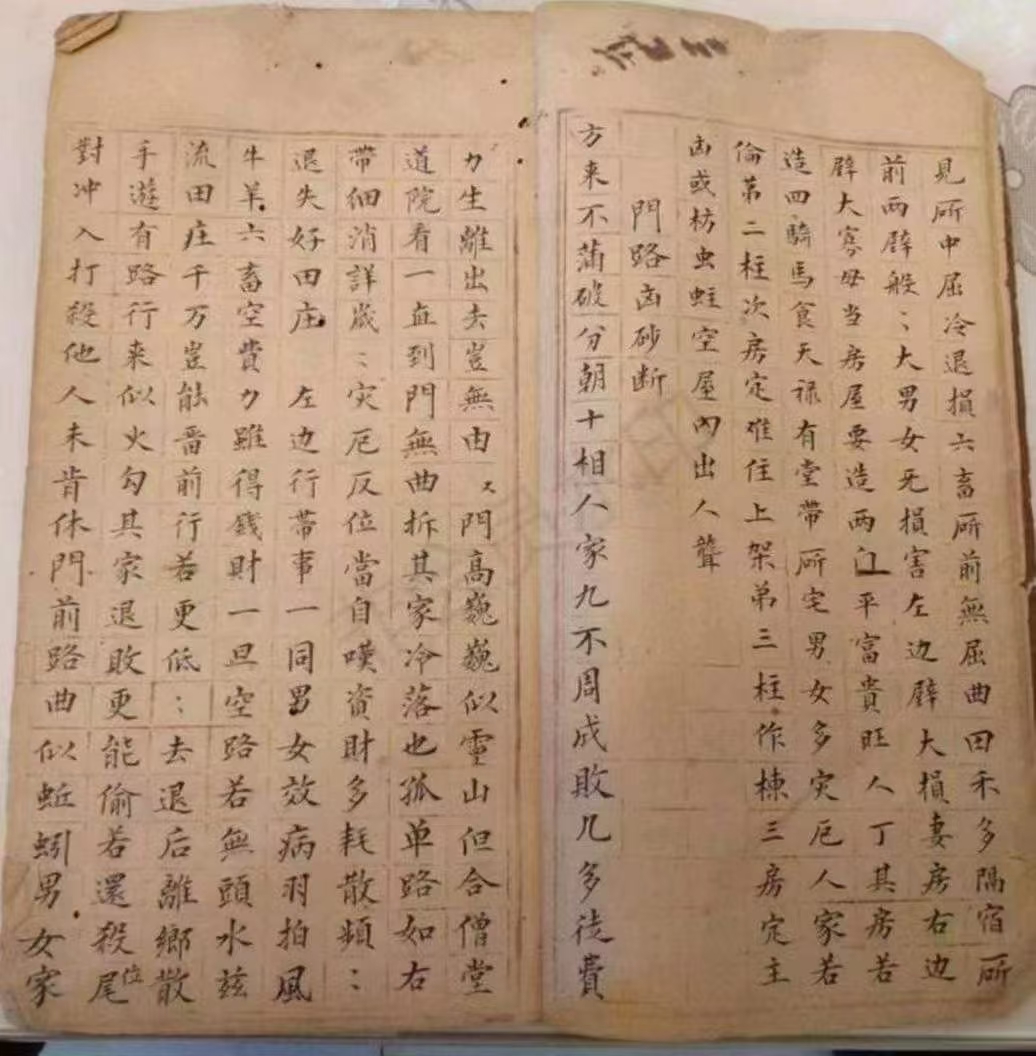 見所中屈冷退損六畜所前無屈曲田禾多隔宿所
前兩壁般〻大男女死損害左边壁大損妻房右边
壁大寡母当房屋要造两门平富貴旺人丁其房若
造四騎馬食天禄有堂帶所宅男女多灾厄人家若
倫第二柱次房定难住上架弟三柱作棟三房定主
凶或枋虫蛀空屋內出人聾
門路凶砂断
方来不蒲破分朝十相人家九不周成敗几多徒費
力生離出去豈無由又門高巍巍似靈山但合僧堂
道院看一直到門無曲拆其家冷落也孤单路如右
帶细消詳歲〻灾厄反位當自嘆資財多耗散頻〻
退失好田庄 左边行帶事一同男女效病羽拍風
牛羊六畜空費力雖得錢財一旦空路若無頭水兹
流田庄千万豈能番前行若更低〻去退后離鄉散
手遊有路行来似火勾其家退敗更能偷若還殺位尾
對冲入打殺他人未肯休門前路曲似蚯蚓男女家